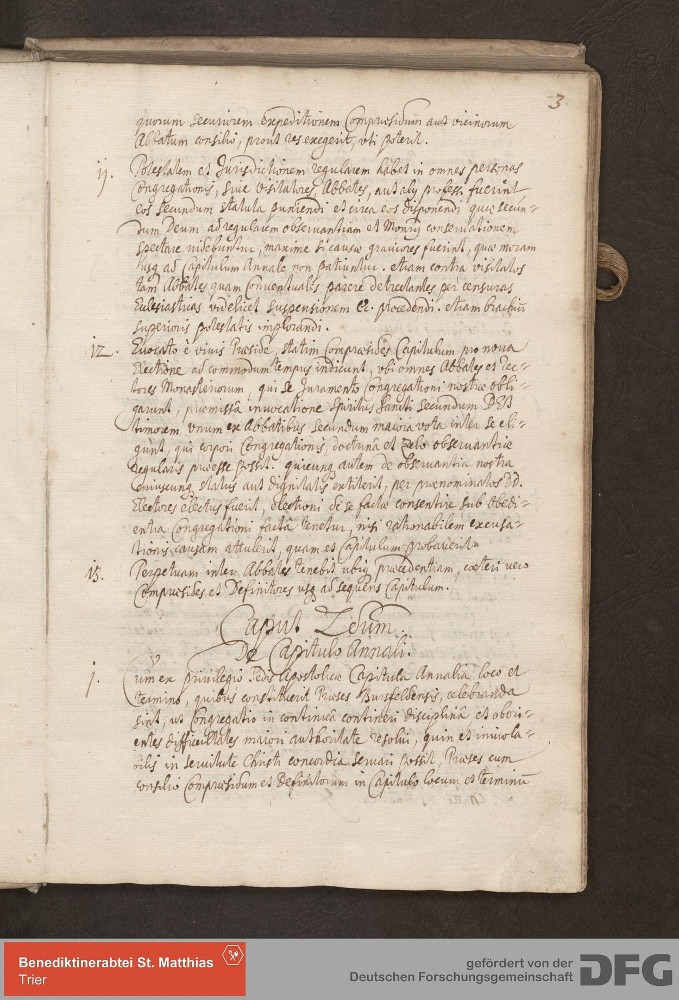 3
quorum securiorem expeditionem Compræsidum aut vicinorum
Abbatum consilio, prout res exegerit, uti poterit.
11. Potestatem et Jurisdictionem regularem habet in omnes personas
Congregationis, siue visitatores, Abbates, aut alij professi fuerint
eos secundum statuta puniendi et circa eos disponendi quæ secun-
dum Deum ad regularem observantiam et Monrij conservationem
spectare videbuntur, maxime si causæ graviores fuerint, quæ moram
usq ad Capitulum Annale non patiuntur. etiam contra visitatos
tam Abbates quam Conventuales parere detrectantes per censuras
Ecclesiasticas videlicet suspensionem &c. procedendi. etiam brachium
superioris potestatis implorandi.
12. Evocato è vivis Præside, statim Compræsides Capitulum pro nova
Electione ad commodum tempus indicent, ubi omnes Abbates et Rec-
tores Monasteriorum, qui se Juramento Congregationi nostræ obli-
garunt, præmissa invocatione Spiritus Sancti secundum DEI
timorem unum ex Abbatibus secundum maiora vota inter se eli-
gunt, qui corpori Congregationis, doctrinâ et zelo observantiæ
regularis præesse possit. quicunq autem de observantia nostra
cuiuscunq status aut dignitatis extiterit, per prænominatos DD.
Electores electus fuerit, electioni de se factæ consentire sub obedi-
entia Congregationi facta tenetur, nisi rationabilem excusa-
tionis causam attulerit, quam et Capitulum probaverit.
13. Perpetuam inter Abbates tenebit ubiq præcedentiam, cæteri vero
Compræsides et Definitores usq ad sequens Capitulum.
Caput 2dum.
De Capitulo Annali.
1. Cum ex privilegio Sedis Apostolicæ Capitula Annalia loco et
termino, quibus constituerit Præses Bursfeldensis, celebranda
sint, ut Congregatio in continuâ contineri disciplinâ et obori-
entes difficultates maiori authoritate resolui, quin et inuiola-
bilis in servitute Christi concordia servari possit, Præses cum
consilio Compræsidum et Definitorum in Capitulo locum et terminū
Benediktinerabtei St. Matthias
Trier
gefördert von der
Deutschen Forschungsgemeinschaft
DFG